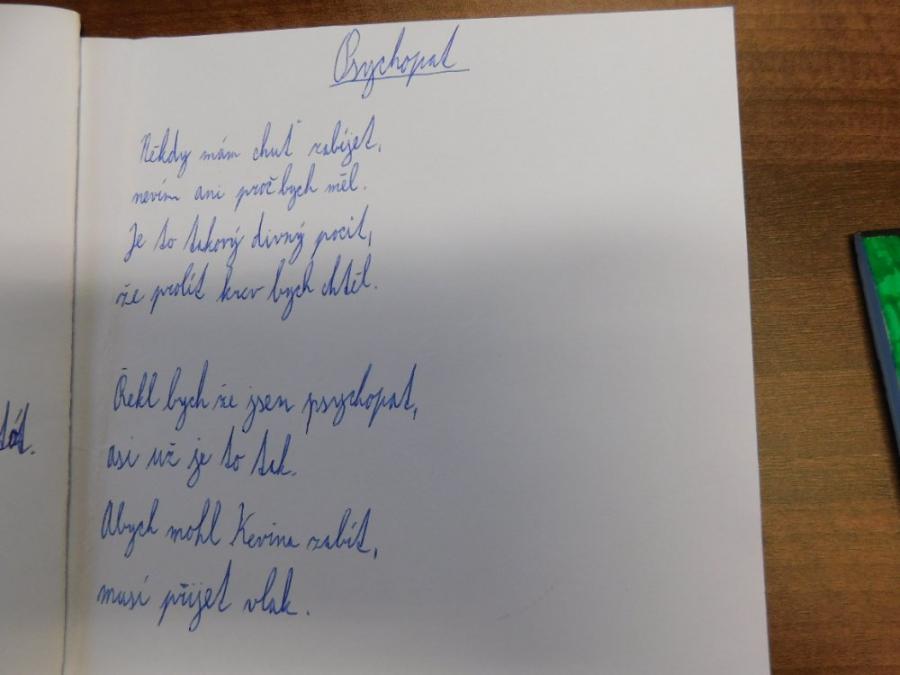 Psychopat
Někdy mám chuť zabíjet,
nevím ani proč bych měl.
Je to takový divný pocit,
že prolít krev bych chtěl.
Řekl bych že jsem psychopat,
asi už je to tak.
Abych mohl Kevina zabít,
musí přijet vlak.